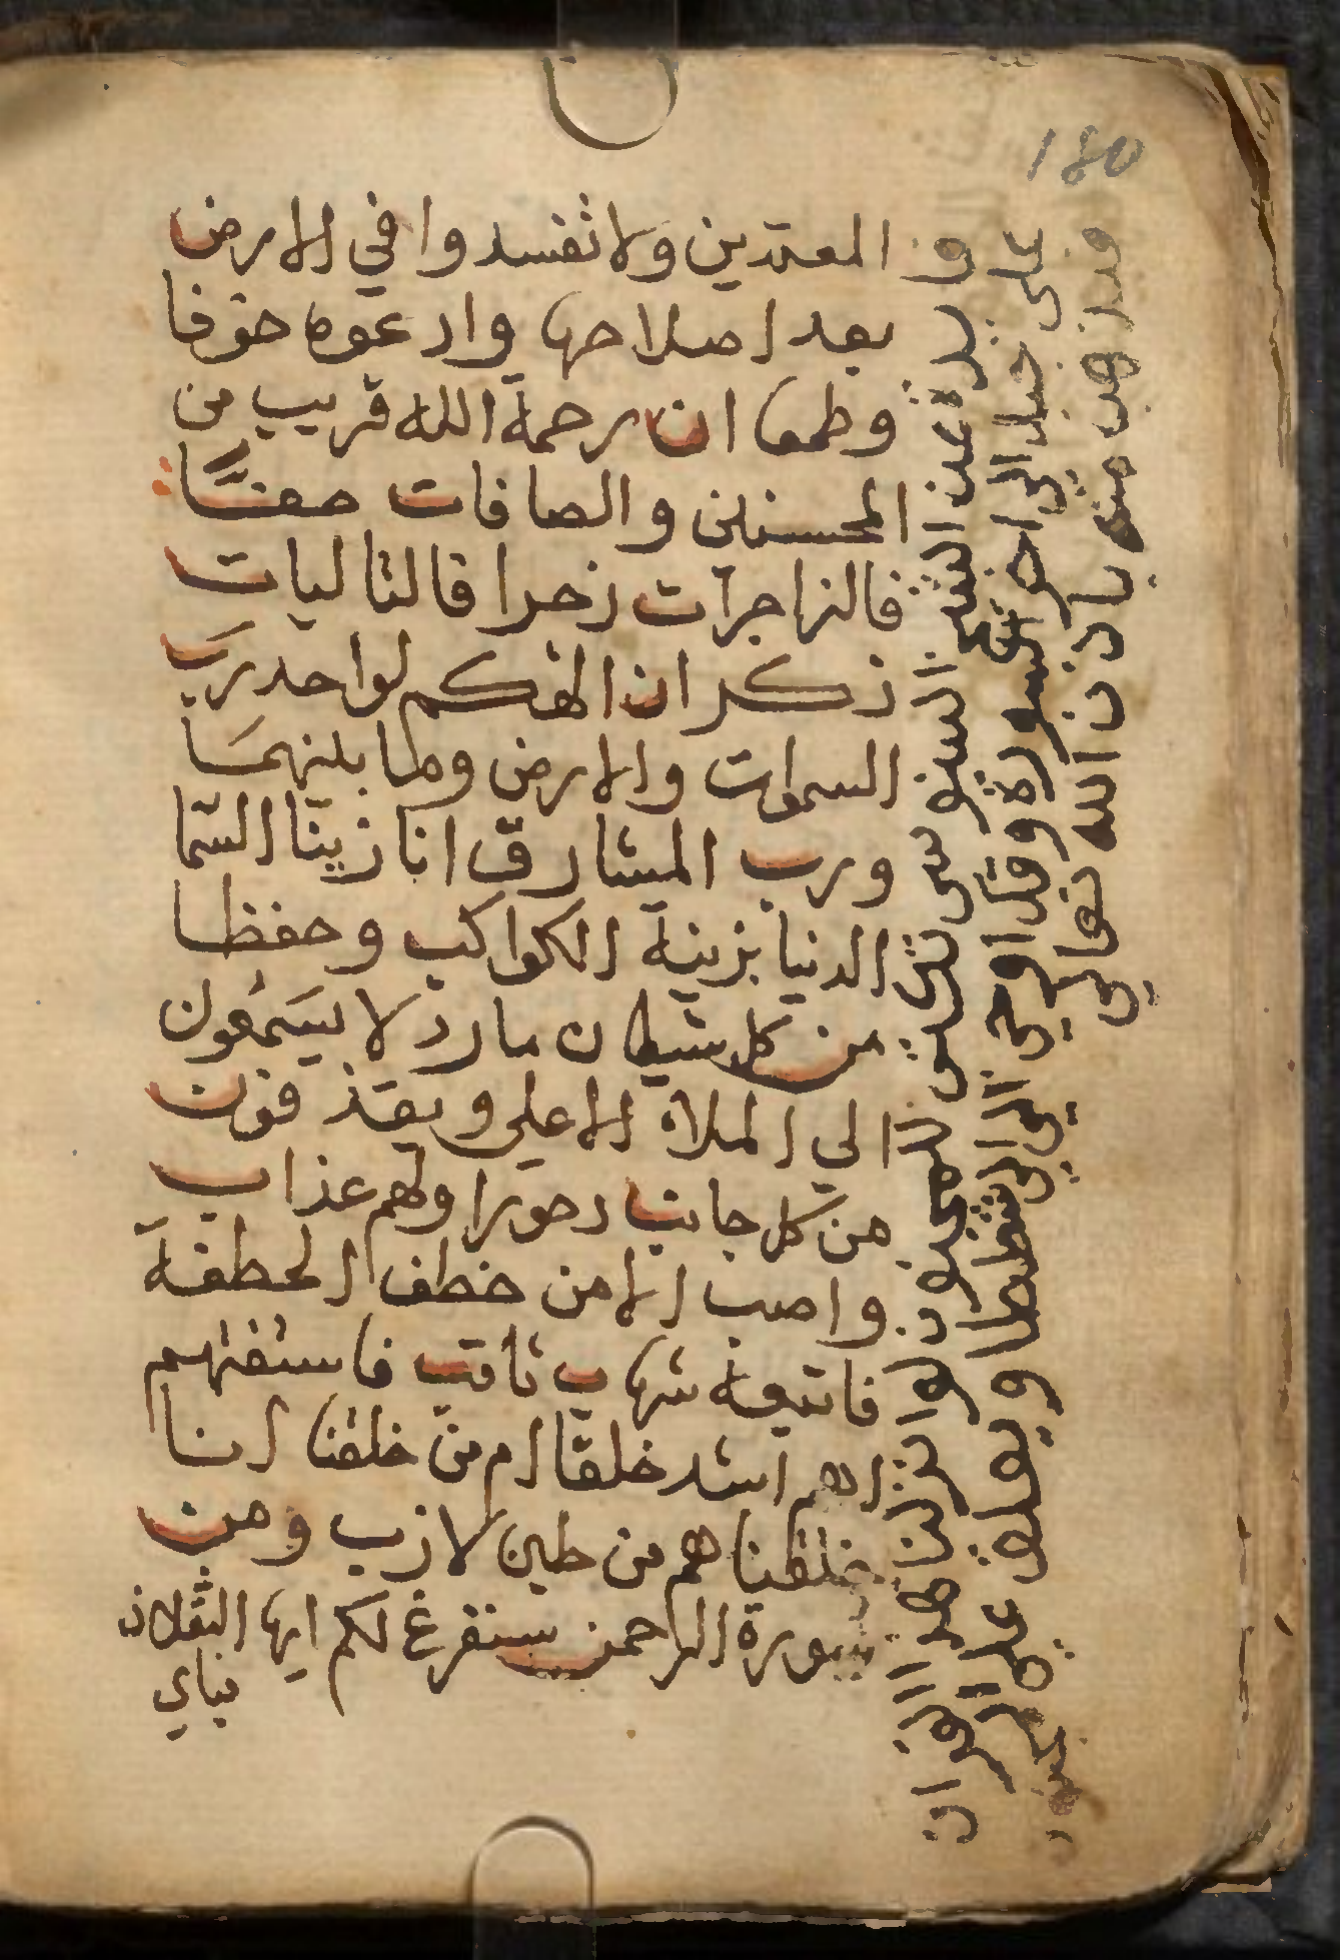 180
المعتدين ولا تفسدوا في الارض
بعد اصلاحها وادعوه خوفا
وطمعا ان رحمة الله قريب من
المحسنين والصافات صفا
فالزاجرات زجرا فالتاليات
ذكرا ان الهكم لواحد رب
السموات والارض وما بينهما
ورب المشارق انا زينا السما
الدنيا بزينة الكواكب وحفظا
من كل شيطان مارد لا يسمعون
الي الملاء الاعلي ويقذفون
من كل جانب دحورا ولهم عذاب
واصب الا من خطف الخطفة
فاتبعه شهاب ثاقب فاستفتهم
اهم اشد خلقا ام من خلقنا انا
خلقناهم من طين لازب ومن
سورة الرحمن سنفرغ لكم ايها الثقلان
فباي
فايدة عن الشيخ السنوسي تكتب للمجنون لو انزلنا هذا القران
علي جبل الي اخر السورة وقل اوحي الي الي شططا ويعلق عليه
يذهب منه باذن الله تعالي